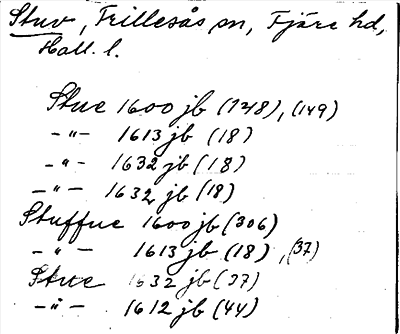 Stuv, Frillesås sn, Fjäre hd,
Hall. l.
Stue 1600 jb (128), (149)
-"- 1613 jb (18)
-"- 1632 jb (18)
-"- 1632 jb (18)
Stuffue 1600 jb (306)
-"- 1613 jb (18), (37)
Stue 1632 jb (37)
-"- 1612 jb (44)